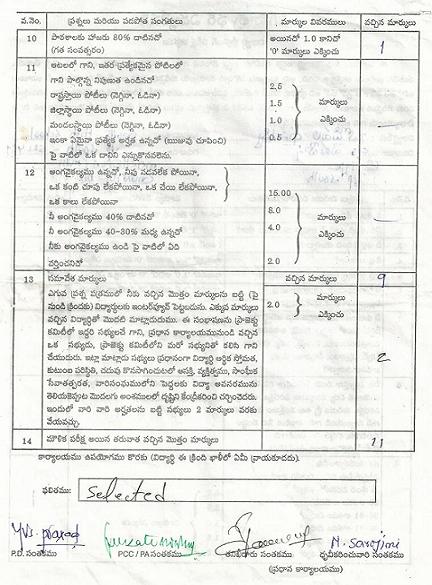 వ.నెం. ప్రశ్నలు మరియు పడపోత సంగతులు మార్కుల వివరములు వచ్చిన మార్కులు
10 పాఠశాలకు హాజరు 80% దాటినచో అయినచో 1.0 కానిచో 1
(గత సంవత్సరం) '0' మార్కులు ఎక్కించు
11 ఆటలలో గాని, ఇతర ప్రత్యేకమైన పోటీలలో
గాని పాల్గొన్న నిపుణత ఉండినచో 2.5
రాష్ట్రస్థాయి పోటీలు (నెగ్గినా, ఓడినా) 1.5 మార్కులు
జిల్లాస్థాయి పోటీలు (నెగ్గినా, ఓడినా) 1.0 ఎక్కించు
మండలస్థాయి పోటీలు (నెగ్గినా, ఓడినా) 0.5
ఇంకా ఏమైనా ప్రత్యేక అర్హత ఉన్నచో (ఋజువు చూపించి)
పై వాటిలో ఒక దానిని ఎన్నుకొనవలెను.
12 అంగవైకల్యము ఉన్నచో, నీవు నడవలేక పోయినా,
ఒక కంటి చూపు లేకపోయినా, ఒక చేయి లేకపోయినా, 15.00
ఒక కాలు లేకపోయినా 8.0
నీ అంగవైకల్యము 40% దాటినచో 4.0 మార్కులు
నీ అంగవైకల్యము 40-30% మధ్య ఉన్నచో ఎక్కించు
నీకు అంగవైకల్యము ఉండి పై వాటిలో ఏది 2.0
వర్తించనిచో
13 సమావేశ మార్కులు వచ్చిన మార్కులు 9
ఎగువ ప్రశ్న పత్రములో నీకు వచ్చిన మొత్తం మార్కులను బట్టి (పై 2.0 మార్కులు
నుండి క్రిందకు) విద్యార్థులకు ఇంటర్వ్యూకై పెట్టబడును. ఎక్కువ మార్కులు ఎక్కించు
వచ్చిన విద్యార్థితో మొదటి మాట్లాడుదురు. ఈ సంభాషణను ప్రాజెక్టు
కమిటీలో ఇద్దరి సభ్యులచే గాని, ప్రధాన కార్యాలయమునుండి వచ్చిన
ఒక సభ్యుడు, ప్రాజెక్టు కమిటీలోని మరో సభ్యునితో కలిసి గాని
చేయుదురు. ఇట్లా మాట్లాడు సభ్యులు ప్రధానంగా విద్యార్థి ఆర్థిక స్తోమత, 2
కుటుంబ పరిస్థితి, చదువు కొనసాగించుటలో ఆసక్తి, వ్యక్తిత్వము, సాంఘీక
సేవాతత్పరత, వారిసంఘములోని పెద్దలకు విద్యా అవసరమును
తెలియజెప్పుట మొదలగు అంశములలో దృష్టిని కేంద్రీకరించి చర్చించెదరు.
ఇందులో నారి వారి అర్హతలను బట్టి సభ్యులు 2 మార్కులు వరకు
వేయవచ్చు.
14 మౌళిక పరీక్ష అయిన తరువాత వచ్చిన మొత్తం మార్కులు 11
కార్యాలయము ఉపయోగము కొరకు (విద్యార్థి ఈ క్రింది ఖాళీలో ఏమీ వ్రాయకూడదు).
ఫలితము: Selected
N. Sarojini
P.D. సంతకము PCC / PA సంతకము తనిఖీదారు సంతకము ధృవీకరించువారి సంతకము
(ప్రధాన కార్యాలయము)